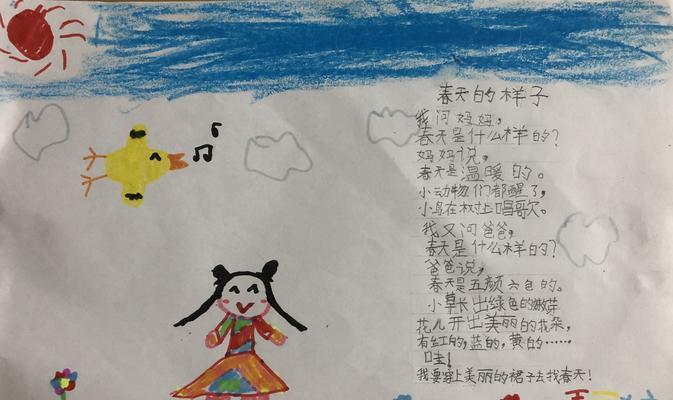 春天的样子
我问妈妈，
春天是什么样的？
妈妈说，
春天是温暖的。
小动物们都醒了，
小鸟在树上唱歌。
我又问爸爸，
春天是什么样的？
爸爸说，
春天是五颜六色的。
小草长出绿色的嫩芽
花儿开出美丽的花朵，
有红的，蓝的，黄的……
哇！
我要穿上美丽的裙子去找春天！